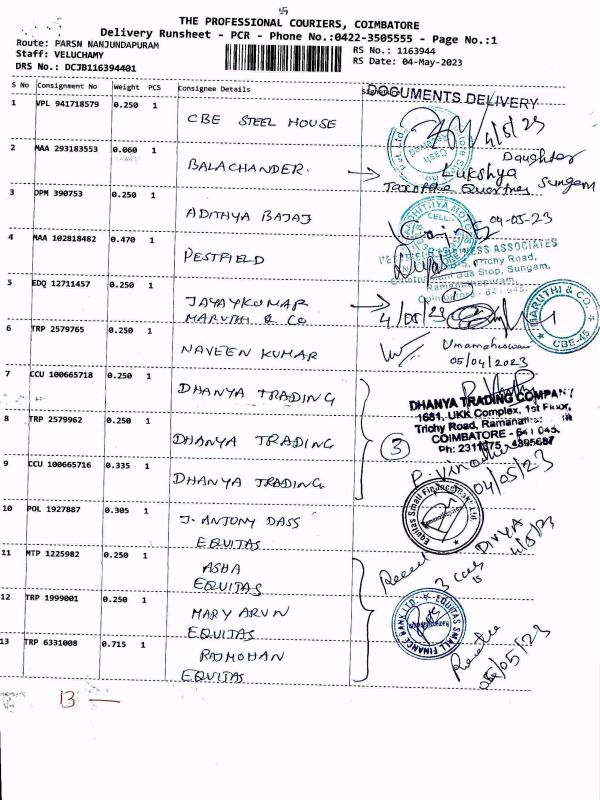 THE PROFESSIONAL COURIERS, COIMBATORE
Delivery Runsheet - PCR - Phone No.:0422-3505555 - Page No.:1
Route: PARSN NANJUNDAPURAM
Staff: VELUCHAMY
DRS No.: DCJB116394401
RS No.: 1163944
RS Date: 04-May-2023
S No Consignment No Weight PCS Consignee Details
DOCUMENTS DELIVERY
1 VPL 941718579 0.250 1 CBE STEEL HOUSE 4/5/23
2 MAA 293183553 0.060 1 BALACHANDER. Daughter
Lukshya
Sungam
3 DPM 390753 0.250 1 ADITHYA BAJAJ 04-05-23
4 MAA 102818482 0.470 1 PESTFIELD
ASSOCIATES
Trichy Road,
Bus Stop, Sungam,
Ramanathapuram,
Coimbatore
5 EDQ 12711457 0.250 1 JAYAYKUMAR
MARUTHI & CO 4/05/23
MARUTHI & CO.
CBE-45
6 TRP 2579765 0.250 1 NAVEEN KUMAR Umamaheswari
05/04/2023
7 CCU 100665718 0.250 1 DHANYA TRADING
DHANYA TRADING COMPANY
1681, UKK Complex, 1st Floor,
Trichy Road,
COIMBATORE - 641 045.
Ph: 4395687
8 TRP 2579962 0.250 1 DHANYA TRADING 3
9 CCU 100665716 0.335 1 DHANYA TRADING 04/05/23
10 POL 1927887 0.305 1 J. ANTONY DASS
EQUITAS
Equitas Small Finance
DIVYA
4/5/23
11 MTP 1225982 0.250 1 ASHA
EQUITAS
12 TRP 1999001 0.250 1 MARY ARUN
EQUITAS
EQUITAS SMALL FINANCE BANK LTD.
13 TRP 6331008 0.715 1 RAJMOHAN
EQUITAS
05/05/23
13 —